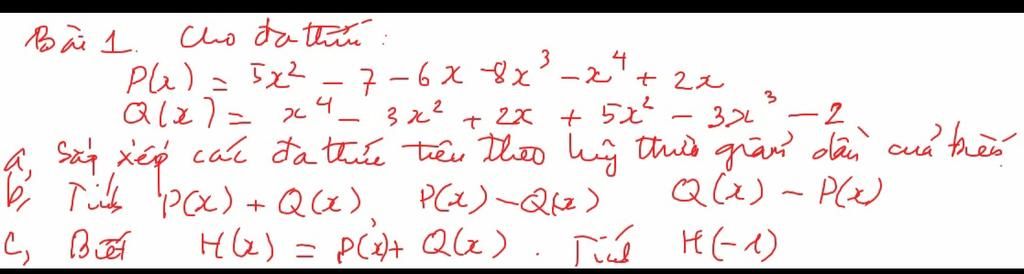 Bài 1. Cho đa thức:
P(x) = 5x² - 7 - 6x - 8x³ - x⁴ + 2x
Q(x) = x⁴ - 3x² + 2x + 5x² - 3x³ - 2
a, Sắp xếp các đa thức trên theo lũy thừa giảm dần của biến.
b, Tính P(x) + Q(x), P(x) - Q(x) Q(x) - P(x)
c, Biết H(x) = P(x) + Q(x). Tính H(-1)